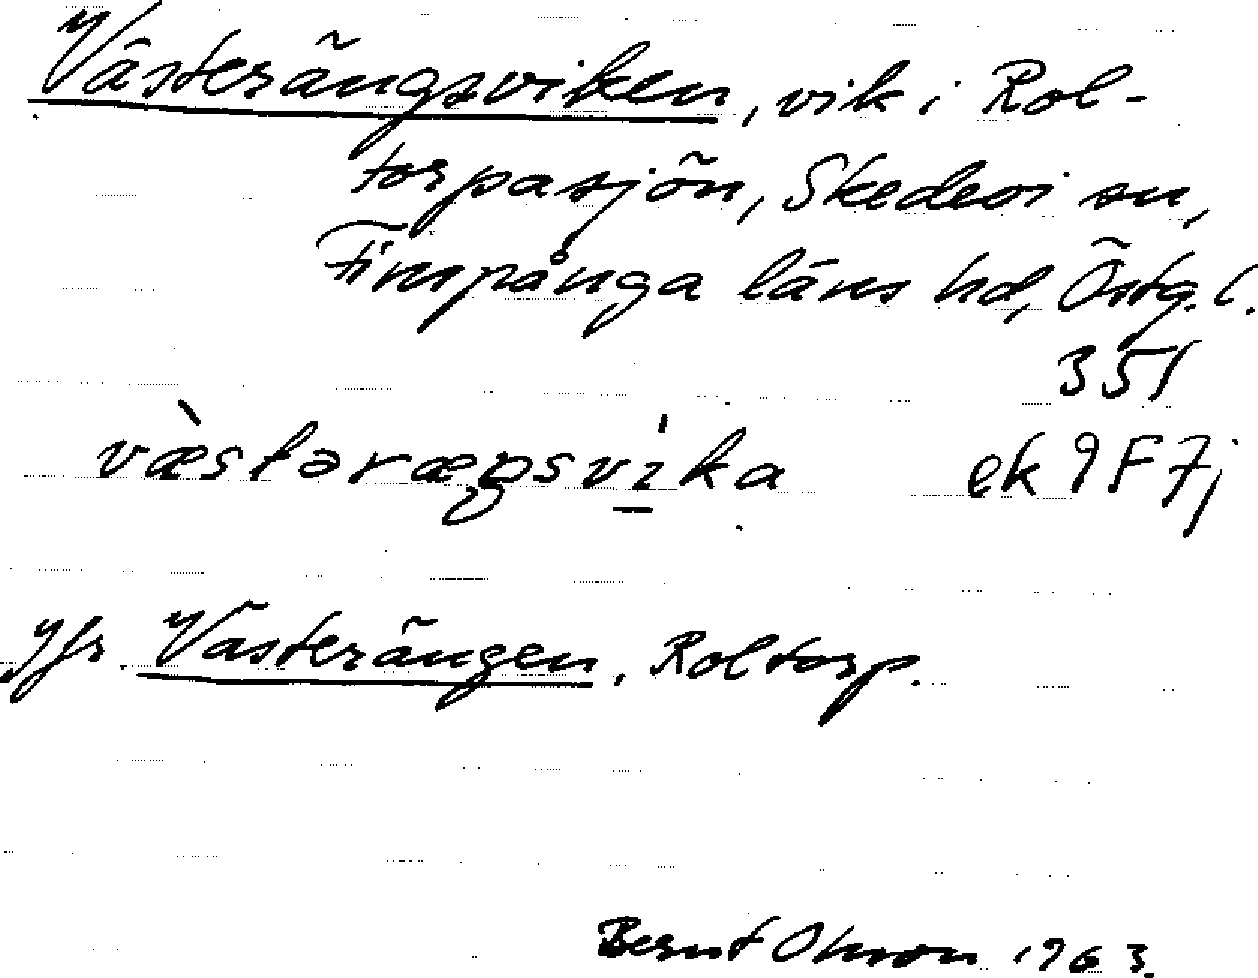 Västerängsviken, vik i Rol-
torpasjön, Skedevi sn,
Finspånga läns hd, Östg. l.
351
væ̀stəræŋsvi̱̍ka ek 9F7j
Jfr Västerängen, Roltorp.
Bernt Olsson 1963.